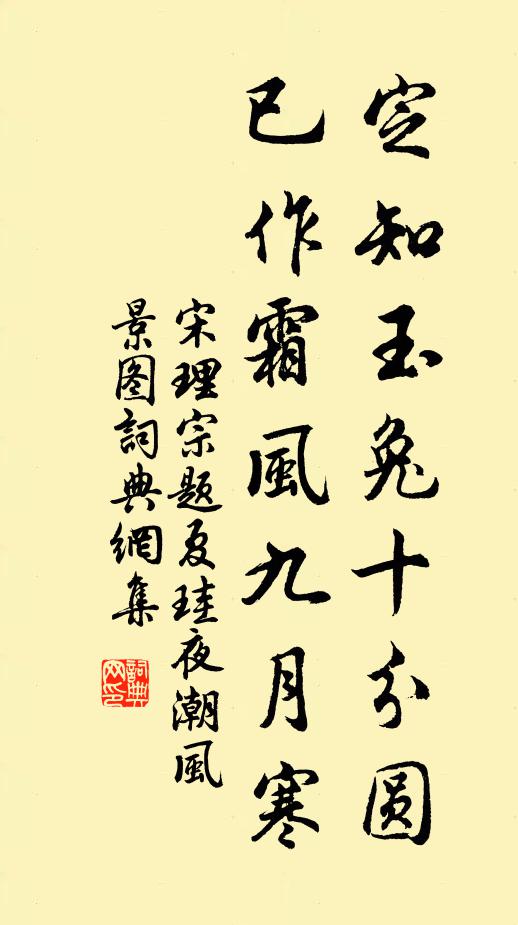 定知玉兔十分圓
已作霜風九月寒
宋理宗題夏珪夜潮風
景图詞典網集
詞典网印